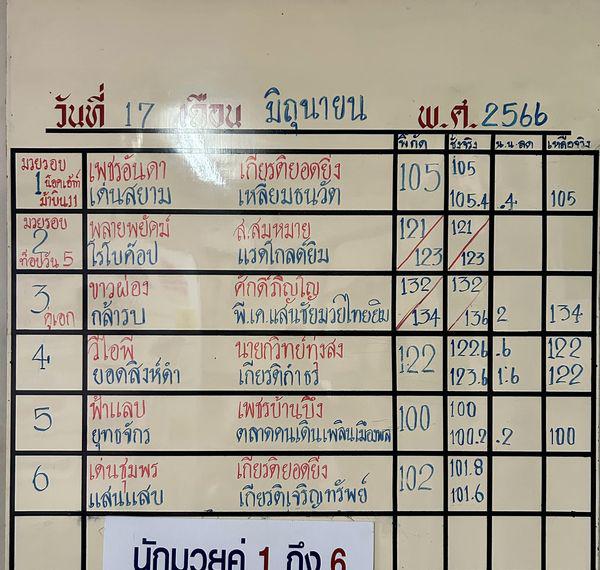 วันที่ 17 เดือน มิถุนายน พ.ศ. 2566
พิกัด ชั่งจริง น.น.ลด เหลือจริง
มวยรอบ เพชรอันดา เกียรติยอดยิ่ง 105 105
1 น็อคเอ้าท์
ม้าบิน11 เด่นสยาม เหลี่ยมธนวัต 105.4 .4 105
มวยรอบ พลายพยัคฆ์ ส.สมหมาย 121 121
2
ท็อปวัน 5 โรโบค๊อป แวดไกลด์ยิม 123 123
3 ขาวผ่อง ศักดิ์ภิญโญ 132 132
คู่เอก กล้ารบ พี.เค.แสนชัยมวยไทยยิม 134 136 2 134
4 วีไอพี นายกวิทย์ทุ่งสง 122 122.6 .6 122
ยอดสิงห์ดำ เกียรติกำธร 123.6 1.6 122
5 ฟ้าแลบ เพชรบ้านบึง 100 100
ยุทธจักร ตลาดคนเดินเพลินเมืองพล 100.2 .2 100
6 เด่นชุมพร เกียรติยอดยิ่ง 102 101.8
แสนแสบ เกียรติเจริญทรัพย์ 101.6
นักมวยคู่ 1 ถึง 6